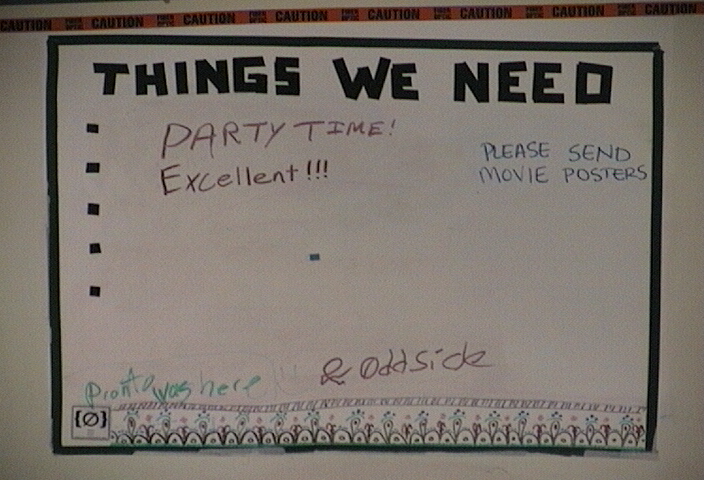 CAUTION CAUTION CAUTION CAUTION CAUTION CAUTION CAUTION CAUTION
THINGS WE NEED
PARTY TIME!
Excellent!!!
PLEASE SEND
MOVIE POSTERS
Pronto was here
& Oddside
{Ø}